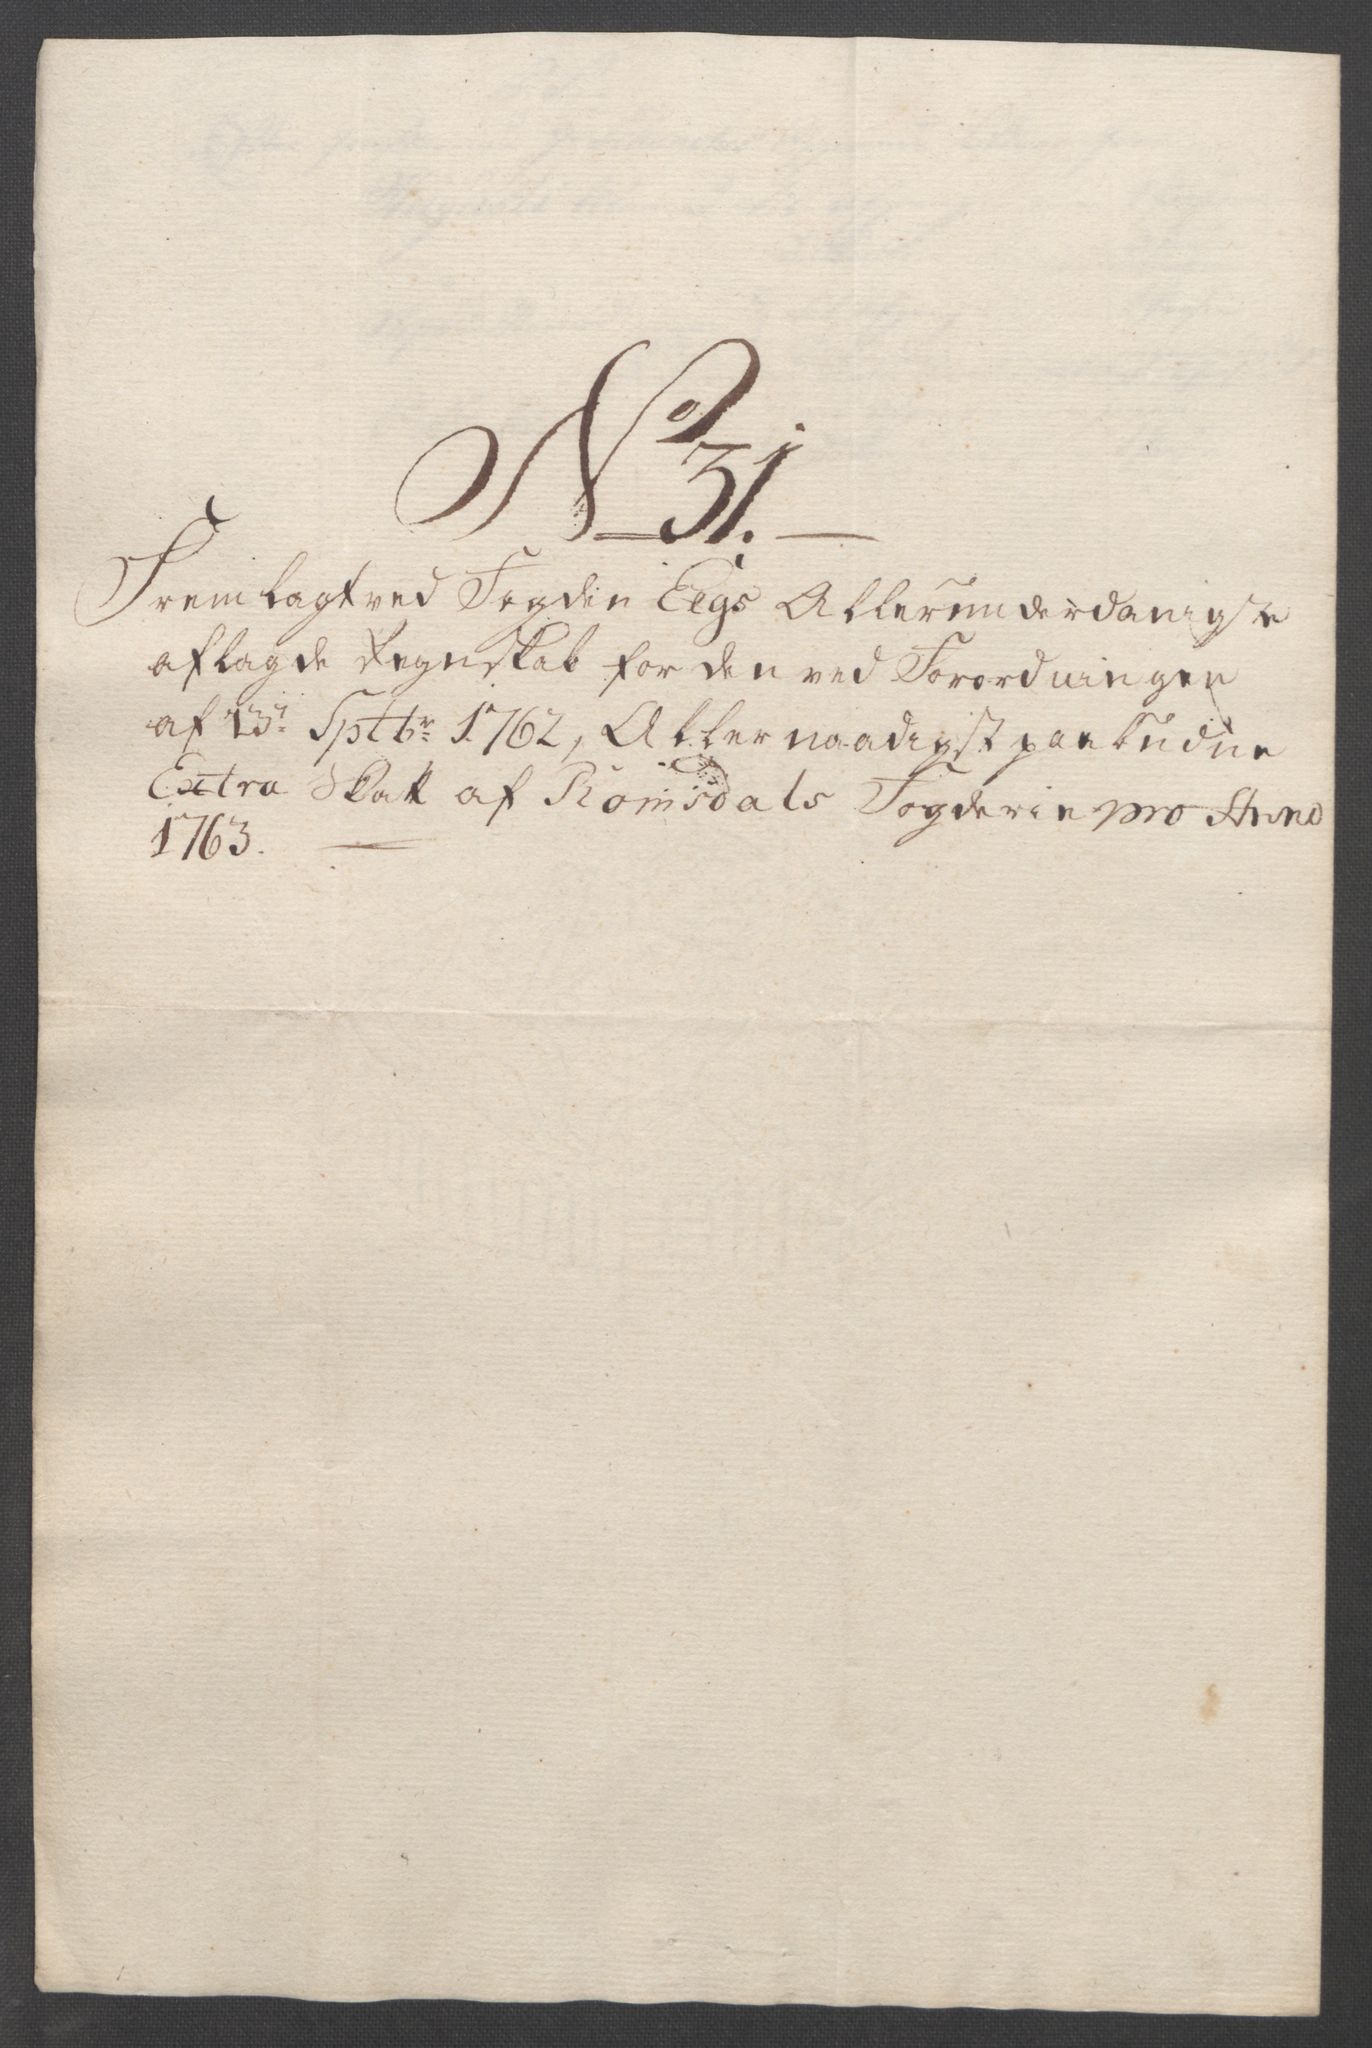 No 31.
Fremlagt ved Fogden Eegs Allerunderdanigste
aflagde Regnskab for den ved Forordningen
af 23de Sptbr 1762, Allernaadigst paabudne
Extra Skatt af Romsdals Fogderie pro Anno
1763.